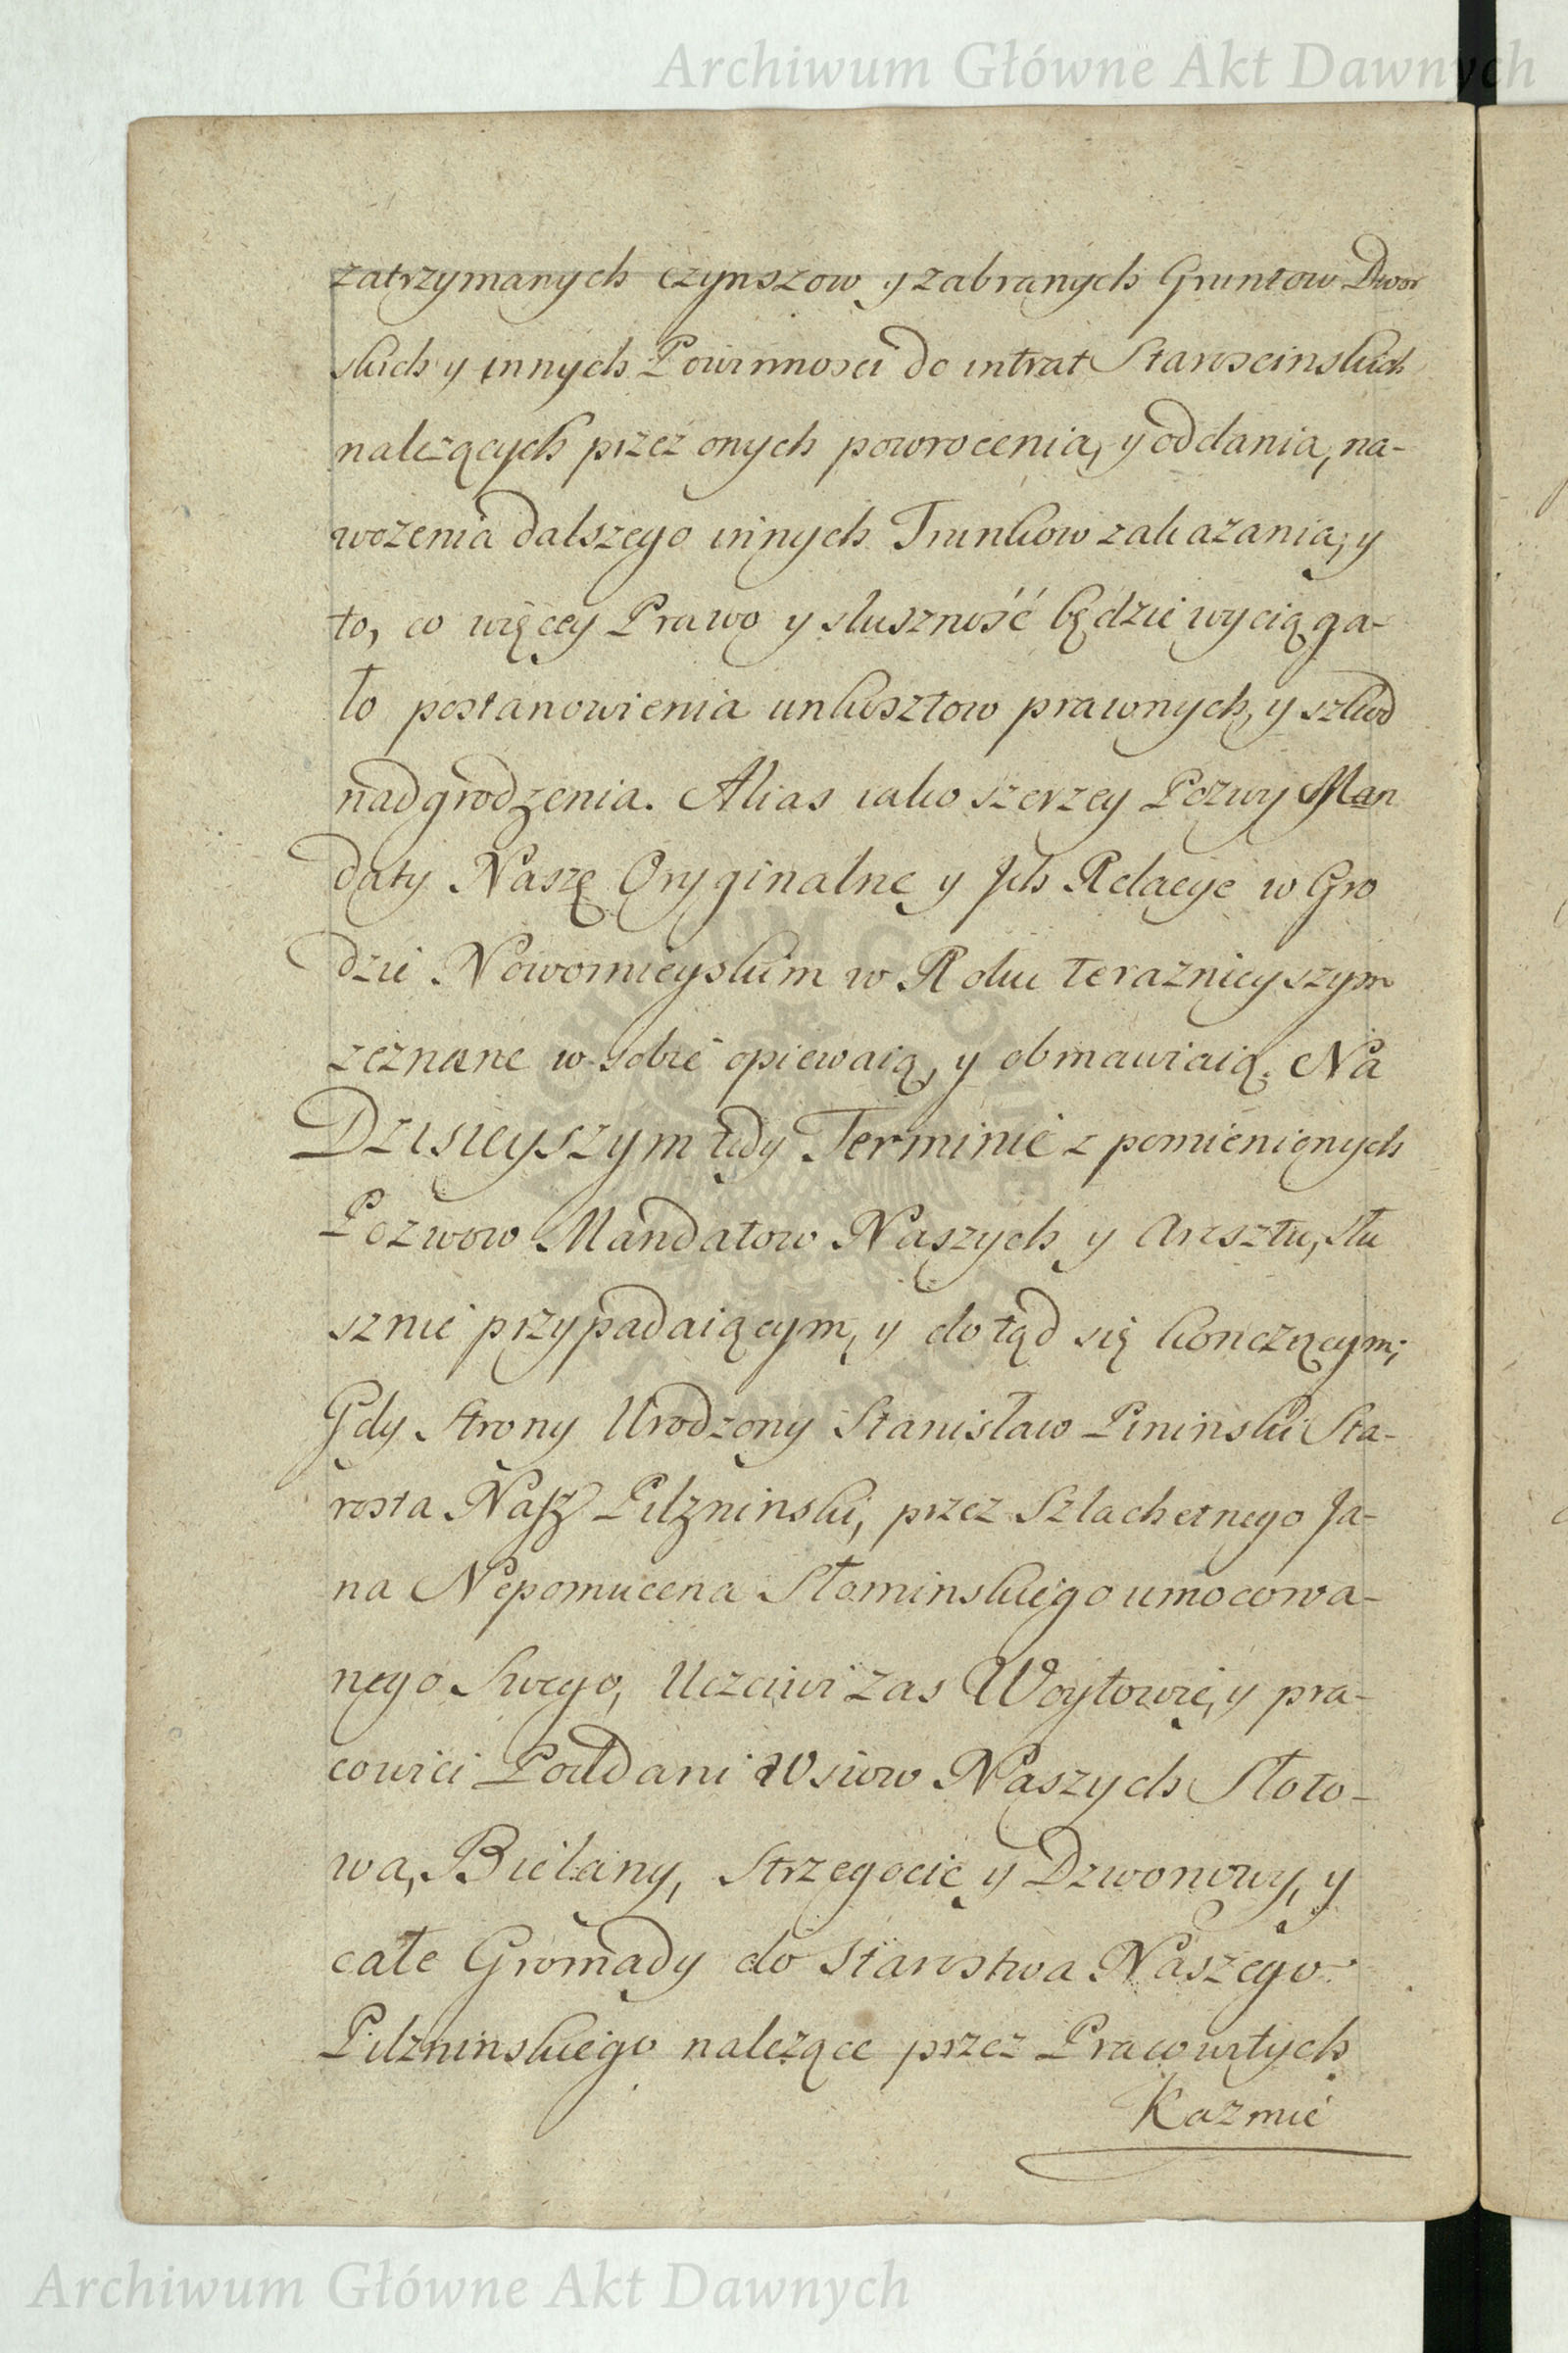 Archiwum Główne Akt Dawnych
zatrzymanych czynszow y zabranych Gruntow Dwor
skich y innych Powinnosci do intrat Staroscinskich
należących przez onych powrocenia, y oddania, na-
wożenia dalszego innych Trunkow zakazania, y
to, co więcey Prawo y słuszność będzie wyciąga-
ło postanowienia unkosztow prawnych, y szkod
nadgrodzenia. Alias iako szerzey Pozwy Man
daty Naszę Oryginalne y Jch Relacye w Gro
dzie Nowomieyskim w Roku teraznieyszym
zeznane w sobie opiewaią, y obmawiaią. Na
Dzisieyszym tedy Terminie z pomienionych
Pozwow Mandatow Naszych y Aresztu, słu
sznie przypadaiącym, y dotąd się konczącym;
Gdy Strony Urodzony Stanisław Pininski Sta-
rosta Nasz Pilzninski, przez Szlachetnego Ja-
na Nepomucena Słominskiego umocowa-
nego Swego, Uczciwi zas Woytowie, y pra-
cowici Poddani Wsiow Naszych Słoto-
wa, Bielany, Strzegocic y Dzwonowy, y
całe Gromady do Starostwa Naszego
Pilzninskiego należące przez Pracowitych
Kazmie
Archiwum Główne Akt Dawnych